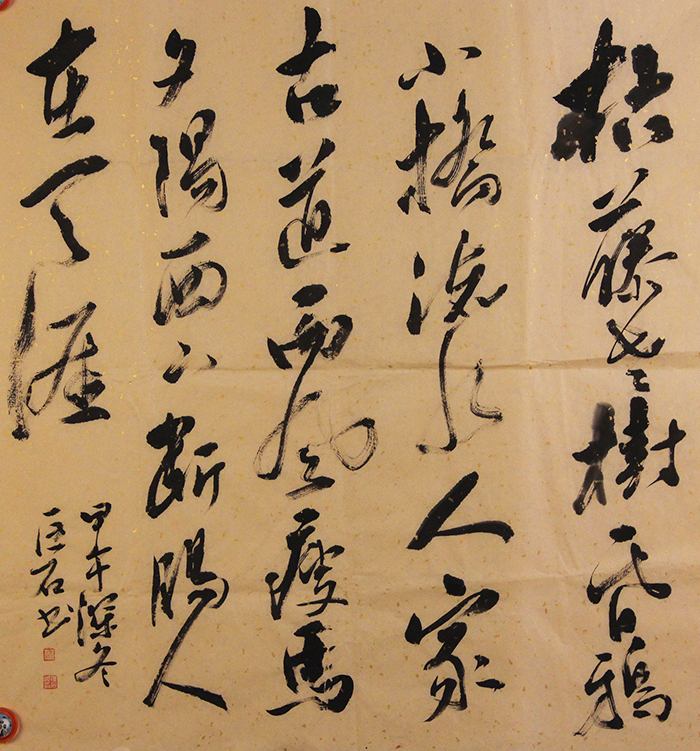 枯藤老樹昏鴉
小橋流水人家
古道西風瘦馬
夕陽西下断腸人
在天涯
甲午深冬
石书